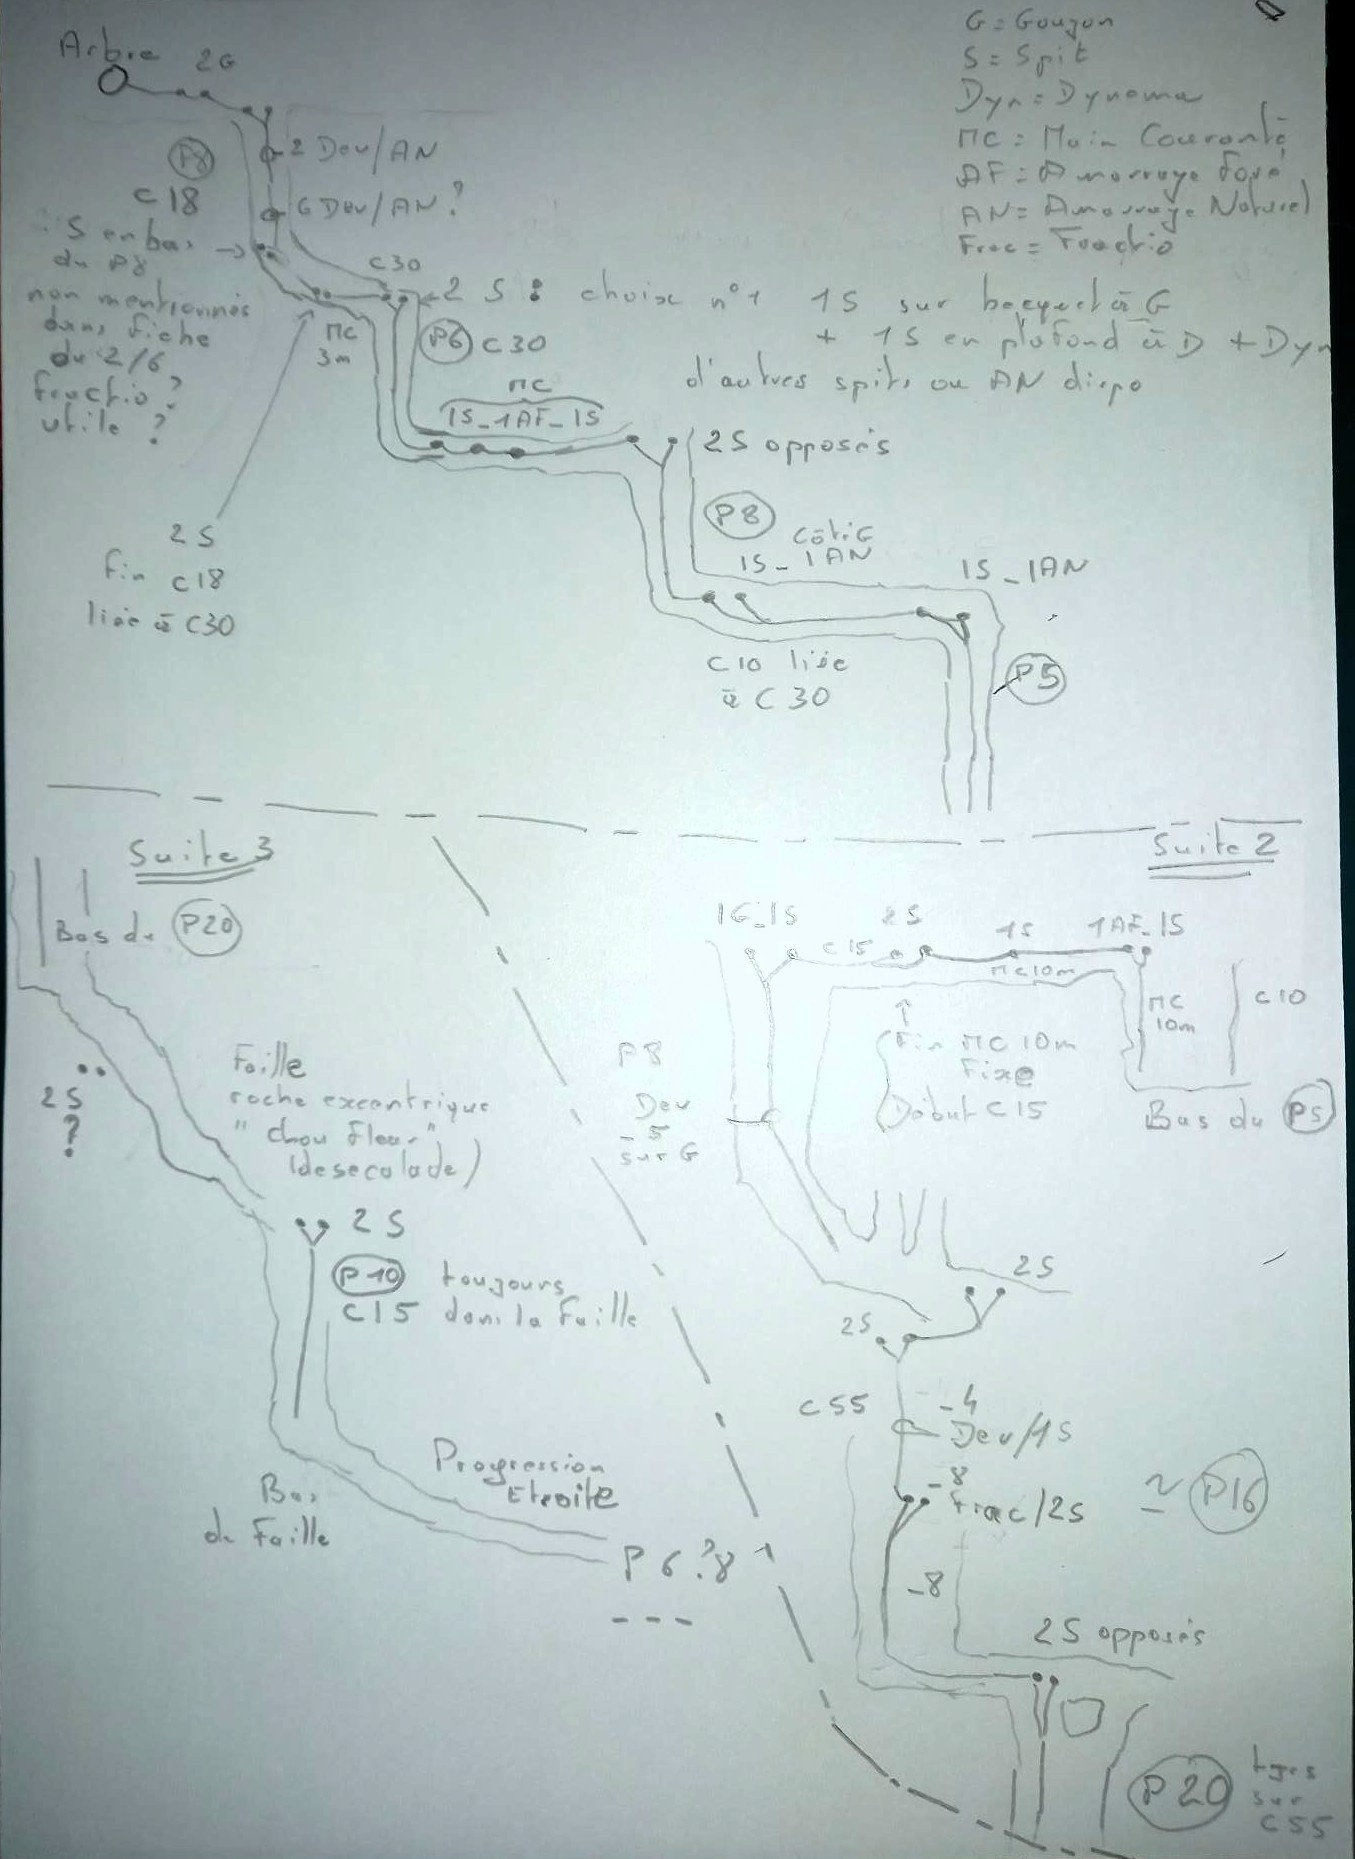 G = Goujon
S = Spit
Dyn = Dynema
MC = Main Courante
AF = Amarrage Foré
AN = Amarrage Naturel
Frac = Fractio
Arbre 2G
P8
C18
2 Dev/AN
6 Dev/AN ?
S en bas
du P8
non mentionnés
dans fiche
du 2/6
fractio ?
utile ?
C30
MC
3m
P6 C30
2 S : choix n°1 1S sur becquet à G
+ 1S en plafond à D + Dyn
d'autres spits ou AN dispo
MC
1S_1AF_1S
2S opposés
2 S
Fin C18
liée à C30
P8
Côté G
1S_1AN
1S_1AN
C10 liée
à C30
P5
Suite 2
1G_1S
C15
2S
1S
1AF_1S
MC10m
MC
10m
C10
Fin MC 10m
Fixe
Début C15
Bas du P5
P8
Dev
-5
sur G
2S
2S
C55
-4
Dev/1S
-8
Frac/2S
≃ P16
-8
2S opposés
P20
tjrs
sur
C55
Suite 3
Bas du P20
2S
?
Faille
roche excentrique
"chou Fleur"
(desecalade)
2 S
P10 toujours
C15 dans la Faille
Progression
Etroite
Bas
de Faille
P 6 ? 8